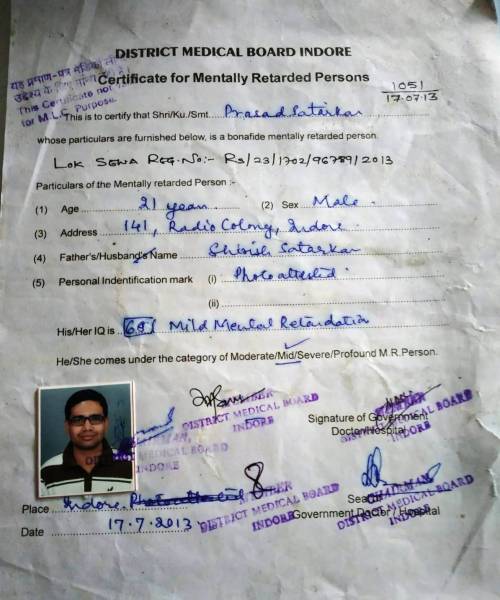 DISTRICT MEDICAL BOARD INDORE
Certificate for Mentally Retarded Persons
यह प्रमाण-पत्र
This Certificate not
for M.L.C. Purpose.
1051
17.07.13
This is to certify that Shri/Ku./Smt. Prasad Satarkar
whose particulars are furnished below, is a bonafide mentally retarded person.
LOK SEWA REG. NO:- RS/23/1702/96789/2013
Particulars of the Mentally retarded Person :-
(1) Age 21 year (2) Sex Male
(3) Address 141, Radio Colony, Indore.
(4) Father's/Husband's Name Shirish Satarkar
(5) Personal Indentification mark (i) Photo attested
(ii)
His/Her IQ is 69 Mild Mental Retardation
He/She comes under the category of Moderate/Mid/Severe/Profound M.R.Person.
MEMBER
DISTRICT MEDICAL BOARD
INDORE
Signature of Government
Doctor/Hospital
DISTRICT MEDICAL BOARD
INDORE
INDORE
MEMBER
DISTRICT MEDICAL BOARD
INDORE
CHAIRMAN
Seal
Government Doctor / Hospital
DISTRICT MEDICAL BOARD
INDORE
Place Indore.
Date 17.7.2013